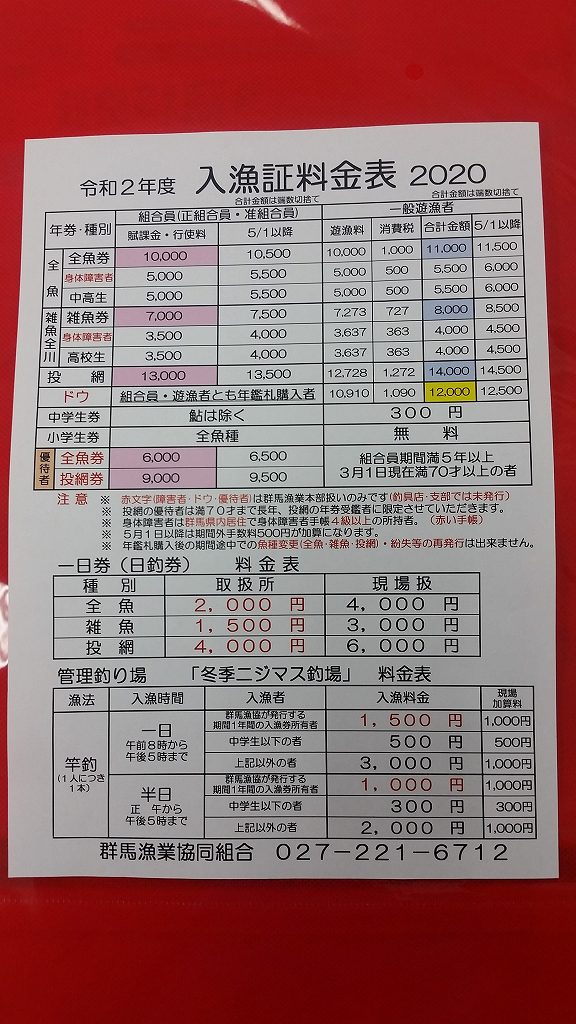 令和2年度 入漁証料金表 2020
合計金額は端数切捨て 合計金額は端数切捨て
年券・種別 組合員(正組合員・准組合員) 一般遊漁者
賦課金・行使料 5/1以降 遊漁料 消費税 合計金額 5/1以降
全魚 全魚券 10,000 10,500 10,000 1,000 11,000 11,500
身体障害者 5,000 5,500 5,000 500 5,500 6,000
中高生 5,000 5,500 5,000 500 5,500 6,000
雑魚全川 雑魚券 7,000 7,500 7,273 727 8,000 8,500
身体障害者 3,500 4,000 3,637 363 4,000 4,500
高校生 3,500 4,000 3,637 363 4,000 4,500
投網 13,000 13,500 12,728 1,272 14,000 14,500
ドウ 組合員・遊漁者とも年鑑札購入者 10,910 1,090 12,000 12,500
中学生券 鮎は除く 300 円
小学生券 全魚種 無料
優待者 全魚券 6,000 6,500 組合員期間満5年以上
投網券 9,000 9,500 3月1日現在満70才以上の者
注意 ※ 赤文字(障害者・ドウ・優待者)は群馬漁業本部扱いのみです(釣具店・支部では未発行)
※ 投網の優待者は満70才まで長年、投網の年券受鑑者に限定させていただきます。
※ 身体障害者は群馬県内居住で身体障害者手帳4級以上の所持者。(赤い手帳)
※ 5月1日以降は期間外手数料500円が加算になります。
※ 年鑑札購入後の期間途中での魚種変更(全魚・雑魚・投網)・紛失等の再発行は出来ません。
一日券(日釣券) 料金表
種別 取扱所 現場扱
全魚 2,000 円 4,000 円
雑魚 1,500 円 3,000 円
投網 4,000 円 6,000 円
管理釣り場 「冬季ニジマス釣場」 料金表
漁法 入漁時間 入漁者 入漁料金 現場加算料
竿釣 (1人につき1本) 一日 午前8時から午後5時まで 群馬漁協が発行する期間1年間の入漁券所有者 1,500 円 1,000円
中学生以下の者 500 円 500円
上記以外の者 3,000 円 1,000円
半日 正午から午後5時まで 群馬漁協が発行する期間1年間の入漁券所有者 1,000 円 1,000円
中学生以下の者 300 円 300円
上記以外の者 2,000 円 1,000円
群馬漁業協同組合 027-221-6712